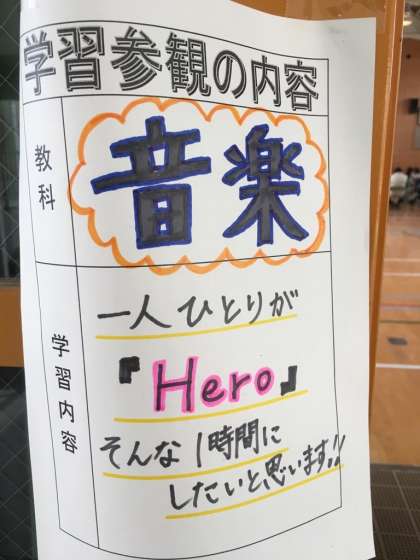 学習参観の内容
教科
音楽
学習内容
一人ひとりが
『Hero』
そんな1時間に
したいと思います!!